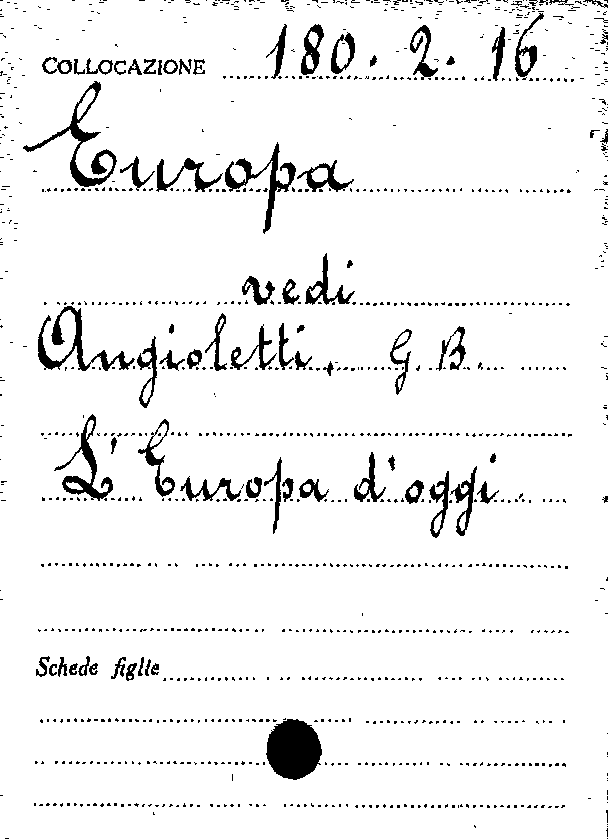 COLLOCAZIONE 180. 2. 16
Europa
vedi
Angioletti, G. B.
L'Europa d'oggi.
Schede figlie